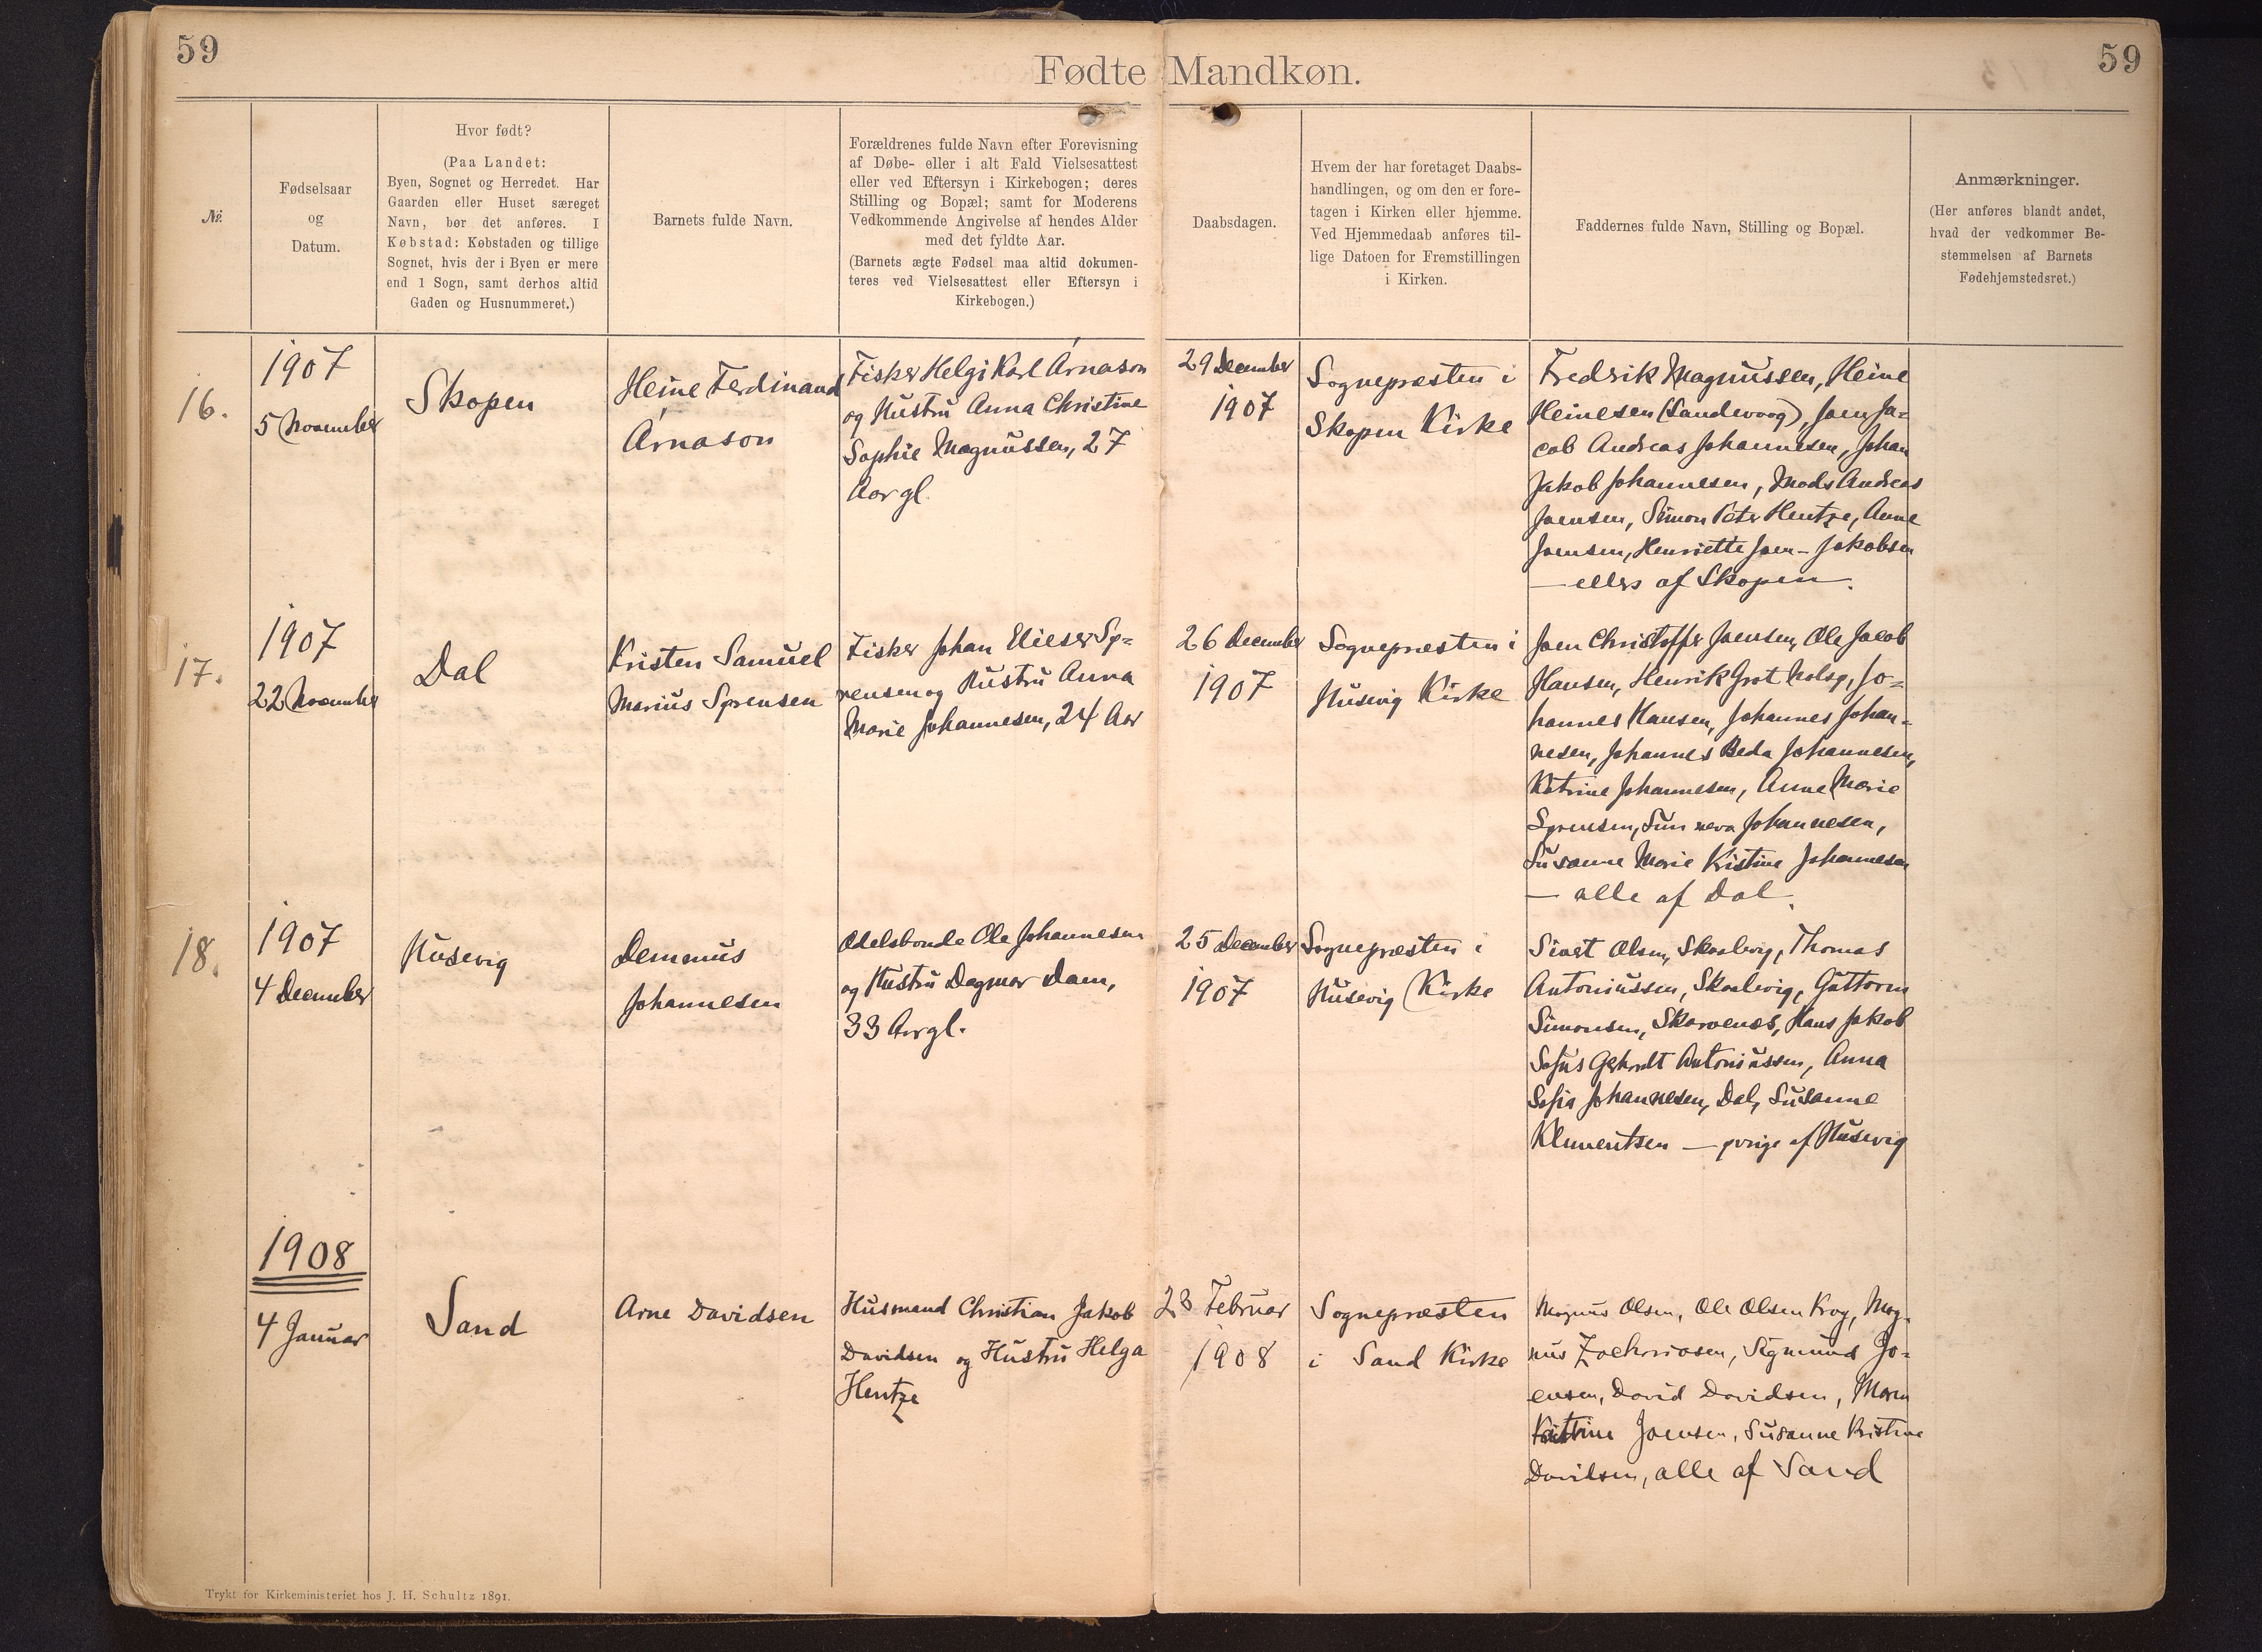 59
59
Fødte Mandkøn.
№
Fødselsaar
og
Datum.
Hvor født?
(Paa Landet:
Byen, Sognet og Herredet. Har
Gaarden eller Huset særeget
Navn, bør det anføres. I
Købstad: Købstaden og tillige
Sognet, hvis der i Byen er mere
end 1 Sogn, samt derhos altid
Gaden og Husnummeret.)
Barnets fulde Navn.
Forældrenes fulde Navn efter Forevisning
af Døbe- eller i alt Fald Vielsesattest
eller ved Eftersyn i Kirkebogen; deres
Stilling og Bopæl; samt for Moderens
Vedkommende Angivelse af hendes Alder
med det fyldte Aar.
(Barnets ægte Fødsel maa altid dokumen-
teres ved Vielsesattest eller Eftersyn i
Kirkebogen.)
Daabsdagen.
Hvem der har foretaget Daabs-
handlingen, og om den er fore-
tagen i Kirken eller hjemme.
Ved Hjemmedaab anføres til-
lige Datoen for Fremstillingen
i Kirken.
Faddernes fulde Navn, Stilling og Bopæl.
Anmærkninger.
(Her anføres blandt andet,
hvad der vedkommer Be-
stemmelsen af Barnets
Fødehjemstedsret.)
16.
1907
5 November
Skopen
Heine Ferdinand
Árnason
Fisker Helgi Karl Árnason
og Hustru Anna Christine
Sophie Magnussen, 27
Aar gl.
29 December
1907
Sognepræsten i
Skopen Kirke
Fredrik Magnussen, Heine
Heinesen (Sandevaag), Joen Ja=
cob Andreas Johannesen, Johan
Jakob Johannesen, Mads Andreas
Joensen, Simon Peter Hentze, Anne
Joensen, Henriette Joen-Jakobsen
— ellers af Skopen.
17.
1907
22 November
Dal
Kristen Samuel
Marius Sørensen
Fisker Johan Elieser Sø=
rensen og Hustru Anna
Marie Johannesen, 24 Aar
26 December
1907
Sognepræsten i
Husevig Kirke
Joen Christoffer Joensen, Ole Jacob
Hansen, Henrik Grot Nolsø, Jo=
hannes Hansen, Johannes Johan=
nesen, Johannes Beda Johannesen,
Katrine Johannesen, Anne Marie
Sørensen, Sunneva Johannesen,
Susanne Marie Kristine Johannesen
— alle af Dal.
18.
1907
4 December
Husevig
Demmus
Johannesen
Odelsbonde Ole Johannesen
og Hustru Dagmar Dam,
33 Aar gl.
25 December
1907
Sognepræsten i
Husevig Kirke
Sivert Olsen, Skaalevig, Thomas
Antoniussen, Skaalevig, Guttorm
Simonsen, Skarvenes, Hans Jakob
Sofus Gerhardt Antoniussen, Anna
Sofia Johannesen, Dal, Susanne
Klementsen — øvrige af Husevig
1908
4 Januar
Sand
Arne Davidsen
Husmand Christian Jakob
Davidsen og Hustru Helga
Hentze
23 Februar
1908
Sognepræsten
i Sand Kirke
Magnus Olsen, Ole Olsen Krog, Mag-
nus Zachariasen, Sigmund Jo=
ensen, David Davidsen, Maren
Katrine Joensen, Susanne Kristine
Davidsen, alle af Sand
Trykt for Kirkeministeriet hos J. H. Schultz 1891.